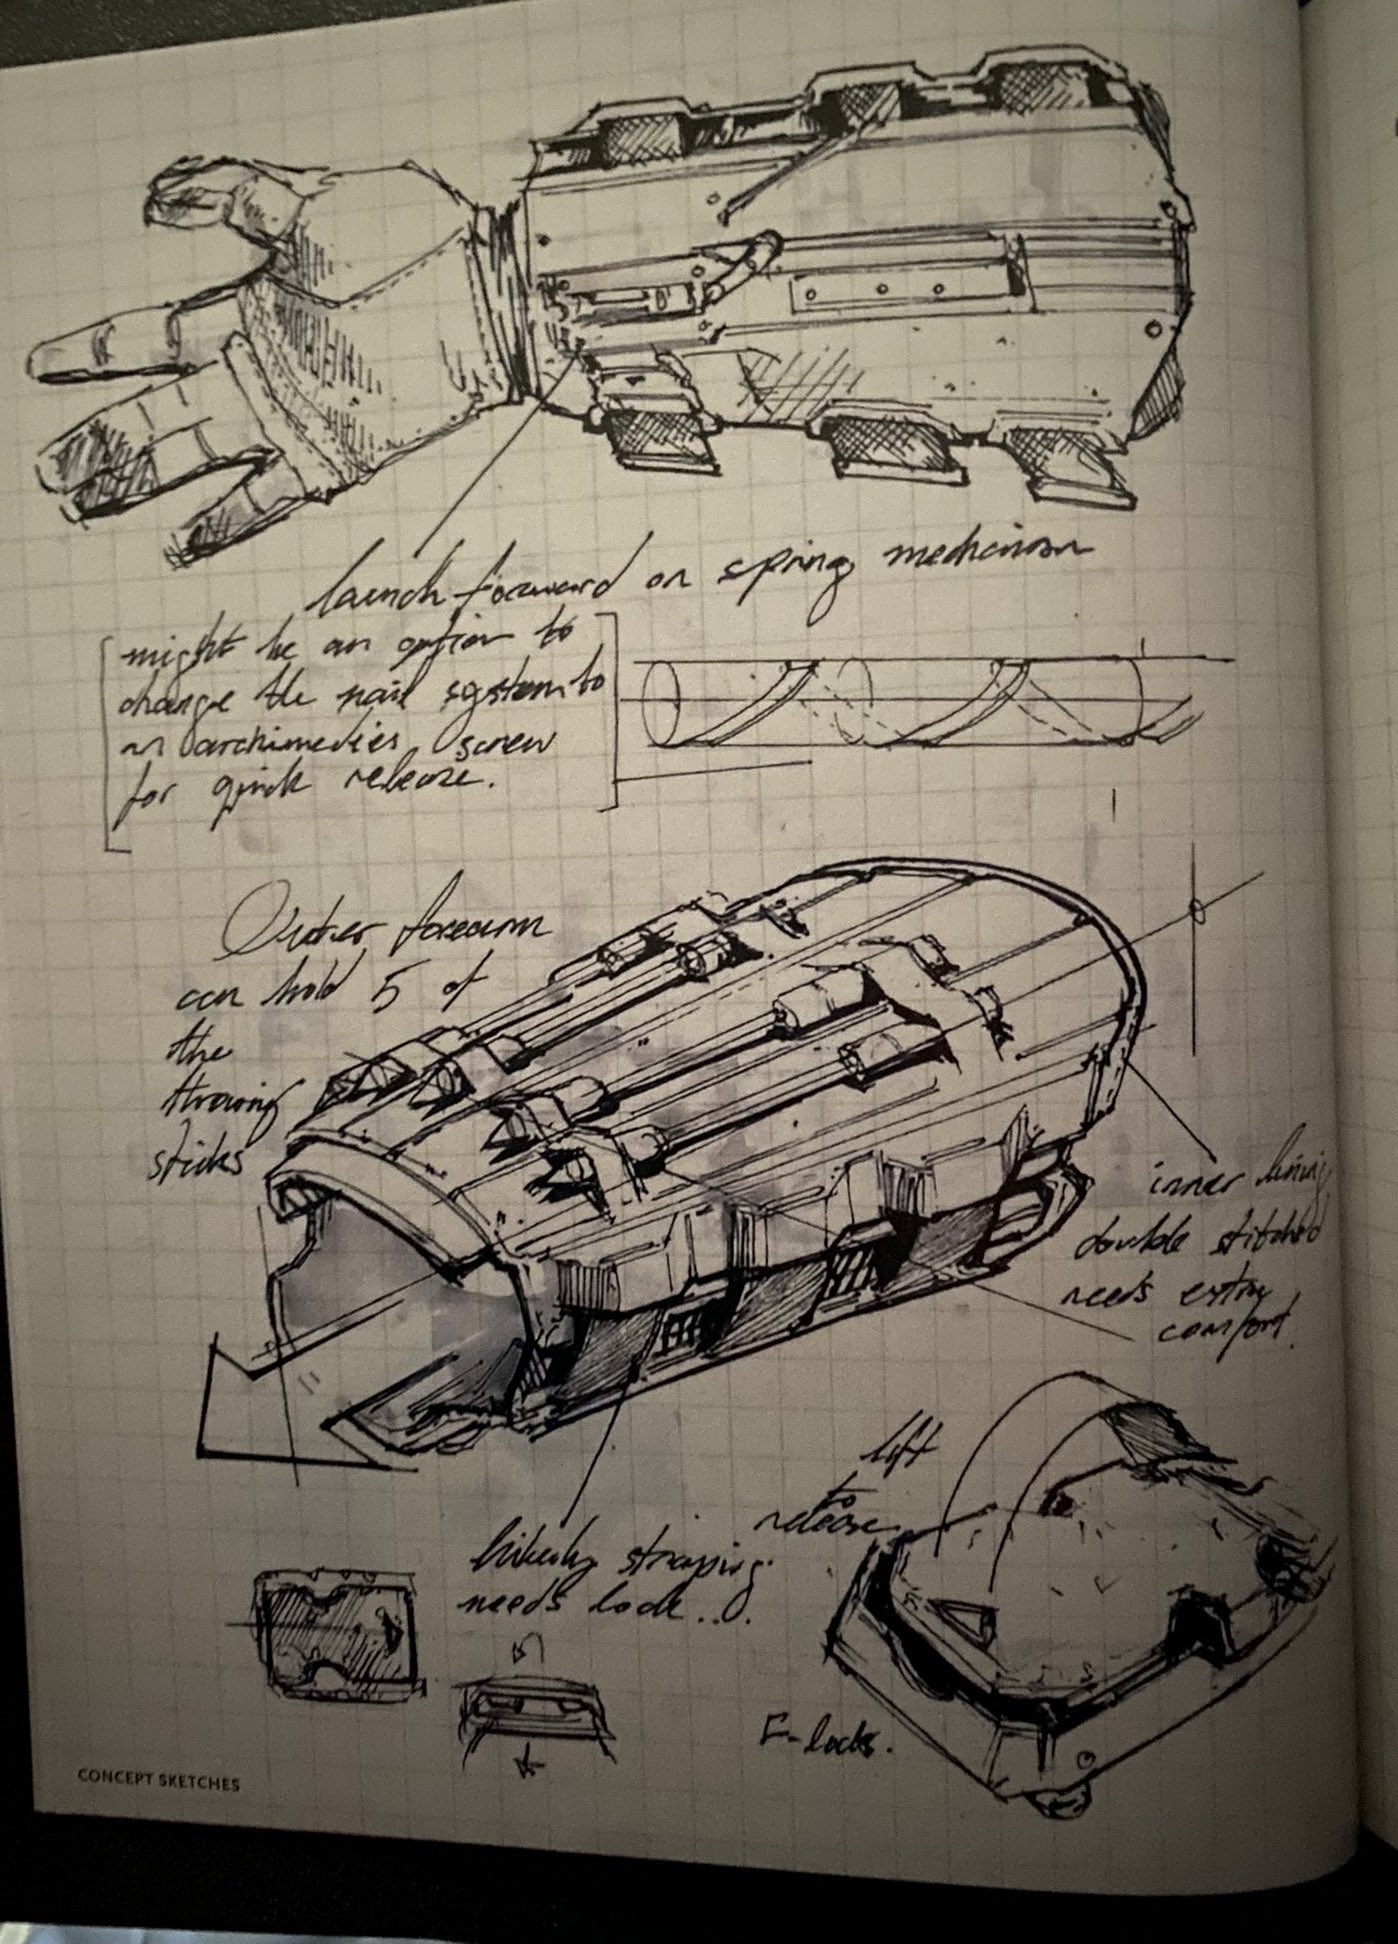 launch forward on spring mechanism
might be an option to
change the nail system to
an archimedies screw
for quick release.
Outer forearm
can hold 5 of
the
throwing
sticks
inner lining
double stitched
needs extra
comfort.
lift
to
release
likely straping
needs lock...
F-locks.
CONCEPT SKETCHES